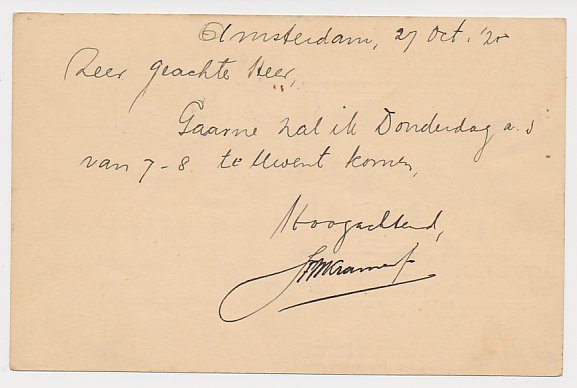 Amsterdam, 27 Oct. '20
Zeer geachte Heer,
Gaarne zal ik Donderdag a.s
van 7-8 te Uwent komen,
Hoogachtend,
Kramer